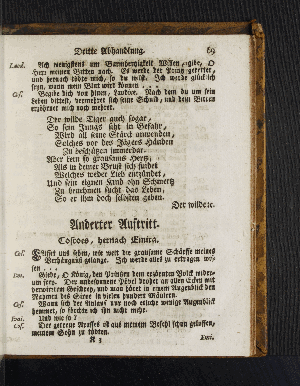 Dritte Abhandlung. 69
Laod. Ach wenigstens um Barmhertzigkeit Willen, gibe, O
Herr meinen Bitten nach. Es werde der Printz gerettet,
und hernach tödte mich, so du wilst. Ich werde glücklich
seyn, wann mein Blut wird können ...
Cos. Begebe dich von hinen, Laodice. Nach dem du um sein
Leben bittest, vermehret sich seine Schuld, und dein Bitten
erzöhrnet mich noch mehrer.
Der wilde Tiger auch sogar,
So sein Junges siht in Gefahr,
Wird all seine Stärck anwenden,
Solches vor des Jägers Händen
Zu beschützen immerdar.
Aber kein so grausams Hertz,
Als in deiner Brust sich findet
Welches weder Lieb entzündet,
Und sein eignen Kind ohn Schmertz
Zu benehmen sucht das Leben,
So er ihm doch selbsten geben.
Der wilde ꝛc.
Anderter Auftritt.
Cosroes, hernach Emira.
Cos. Wisset uns sehen, wie weit die grausame Schärffe meines
Verhängnus gelange. Ich werde alles zu ertragen wis-
sen ...
Emi. Giebe, O König, den Printzen dem erzöhnten Volck wider-
um herz. Der unbesonnene Pövel drohet an allen Ecken mit
verwirrtem Geschrey, und man höret in einem Augenblick den
Namen des Siroe in vielen hundert Mäulern.
Cos. Wann sich der Anlauf nur noch etliche wenige Augenblick
hemmet, so förchte ich ihn nicht mehr.
Emi. Und wie so?
Cos. Der getreue Arasses ist aus meinem Befehl schon geloffen,
meinem Sohn zu tödten.
K 3 Emi.